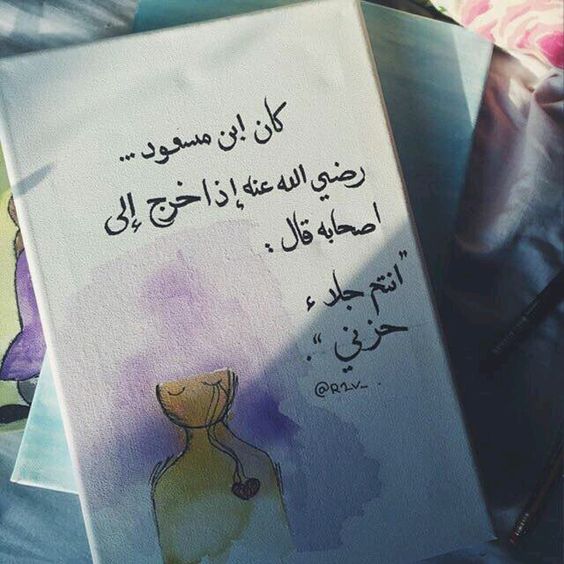 كان ابن مسعود ...
رضي الله عنه إذا خرج إلى
اصحابه قال :
"انتم جلاء
حزني ".
@R2v_